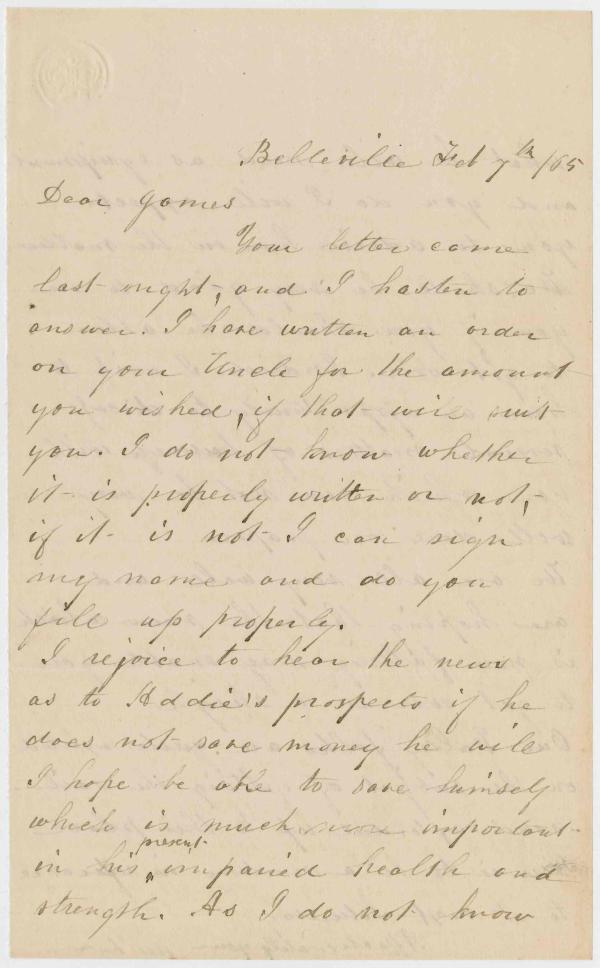 Belleville Feb 7th/65
Dear James
Your letter came
last night, and I hasten to
answer. I have written an order
on your Uncle for the amount
you wished, if that will suit
you. I do not know whether
it is properly written or not,
if it is not I can sign
my name and do you
fill up properly.
I rejoice to hear the news
as to Addie's prospects if he
does not save money he will
I hope be able to save himself
which is much more important
in his present impaired health and
strength. As I do not know